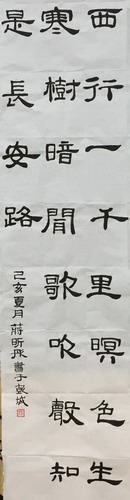 西行一千里暝色生
寒樹暗聞歌吹聲知
是長安路
己亥夏月蔣昕孫書于彭城